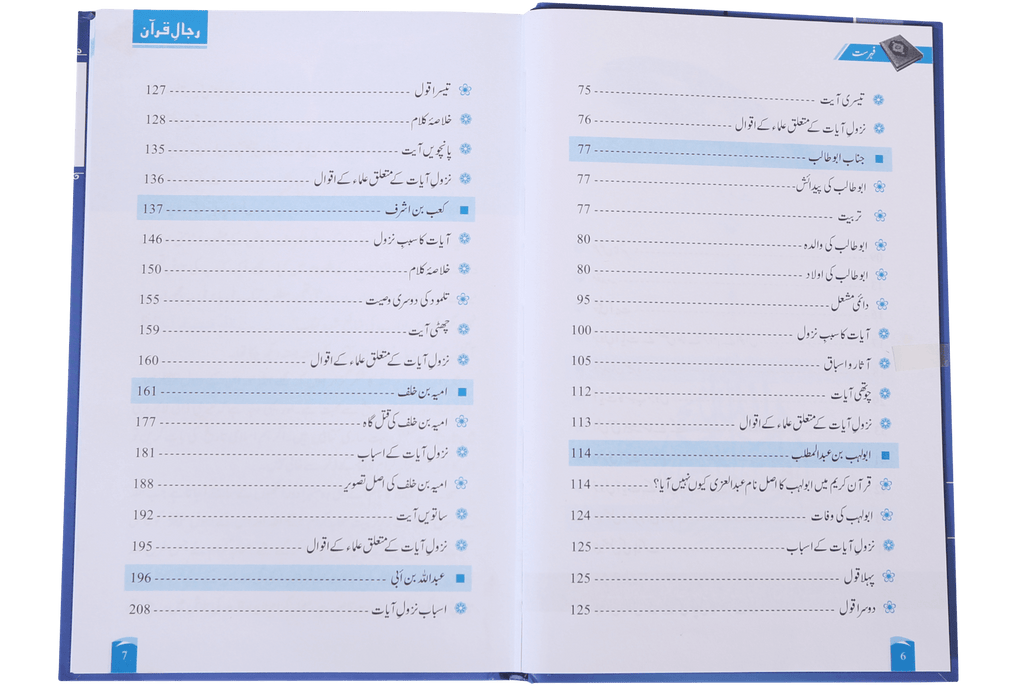 فہرست
تیسری آیت 75
نزولِ آیات کے متعلق علماء کے اقوال 76
جناب ابوطالب 77
ابوطالب کی پیدائش 77
تربیت 77
ابوطالب کی والدہ 80
ابوطالب کی اولاد 80
دائمی مشعل 95
آیات کا سبب نزول 100
آثار و اسباق 105
چوتھی آیات 112
نزولِ آیات کے متعلق علماء کے اقوال 113
ابولہب بن عبدالمطلب 114
قرآن کریم میں ابولہب کا اصل نام عبدالعزی کیوں نہیں آیا؟ 114
ابولہب کی وفات 124
نزولِ آیات کے اسباب 125
پہلا قول 125
دوسرا قول 125
6
رجالِ قرآن
تیسرا قول 127
خلاصۂ کلام 128
پانچویں آیت 135
نزولِ آیات کے متعلق علماء کے اقوال 136
کعب بن اشرف 137
آیات کا سبب نزول 146
خلاصۂ کلام 150
تلمود کی دوسری وصیت 155
چھٹی آیت 159
نزولِ آیات کے متعلق علماء کے اقوال 160
امیہ بن خلف 161
امیہ بن خلف کی قتل گاہ 177
نزولِ آیات کے اسباب 181
امیہ بن خلف کی اصل تصویر 188
ساتویں آیت 192
نزولِ آیات کے متعلق علماء کے اقوال 195
عبداللہ بن اُبی 196
اسباب نزولِ آیات 208
7